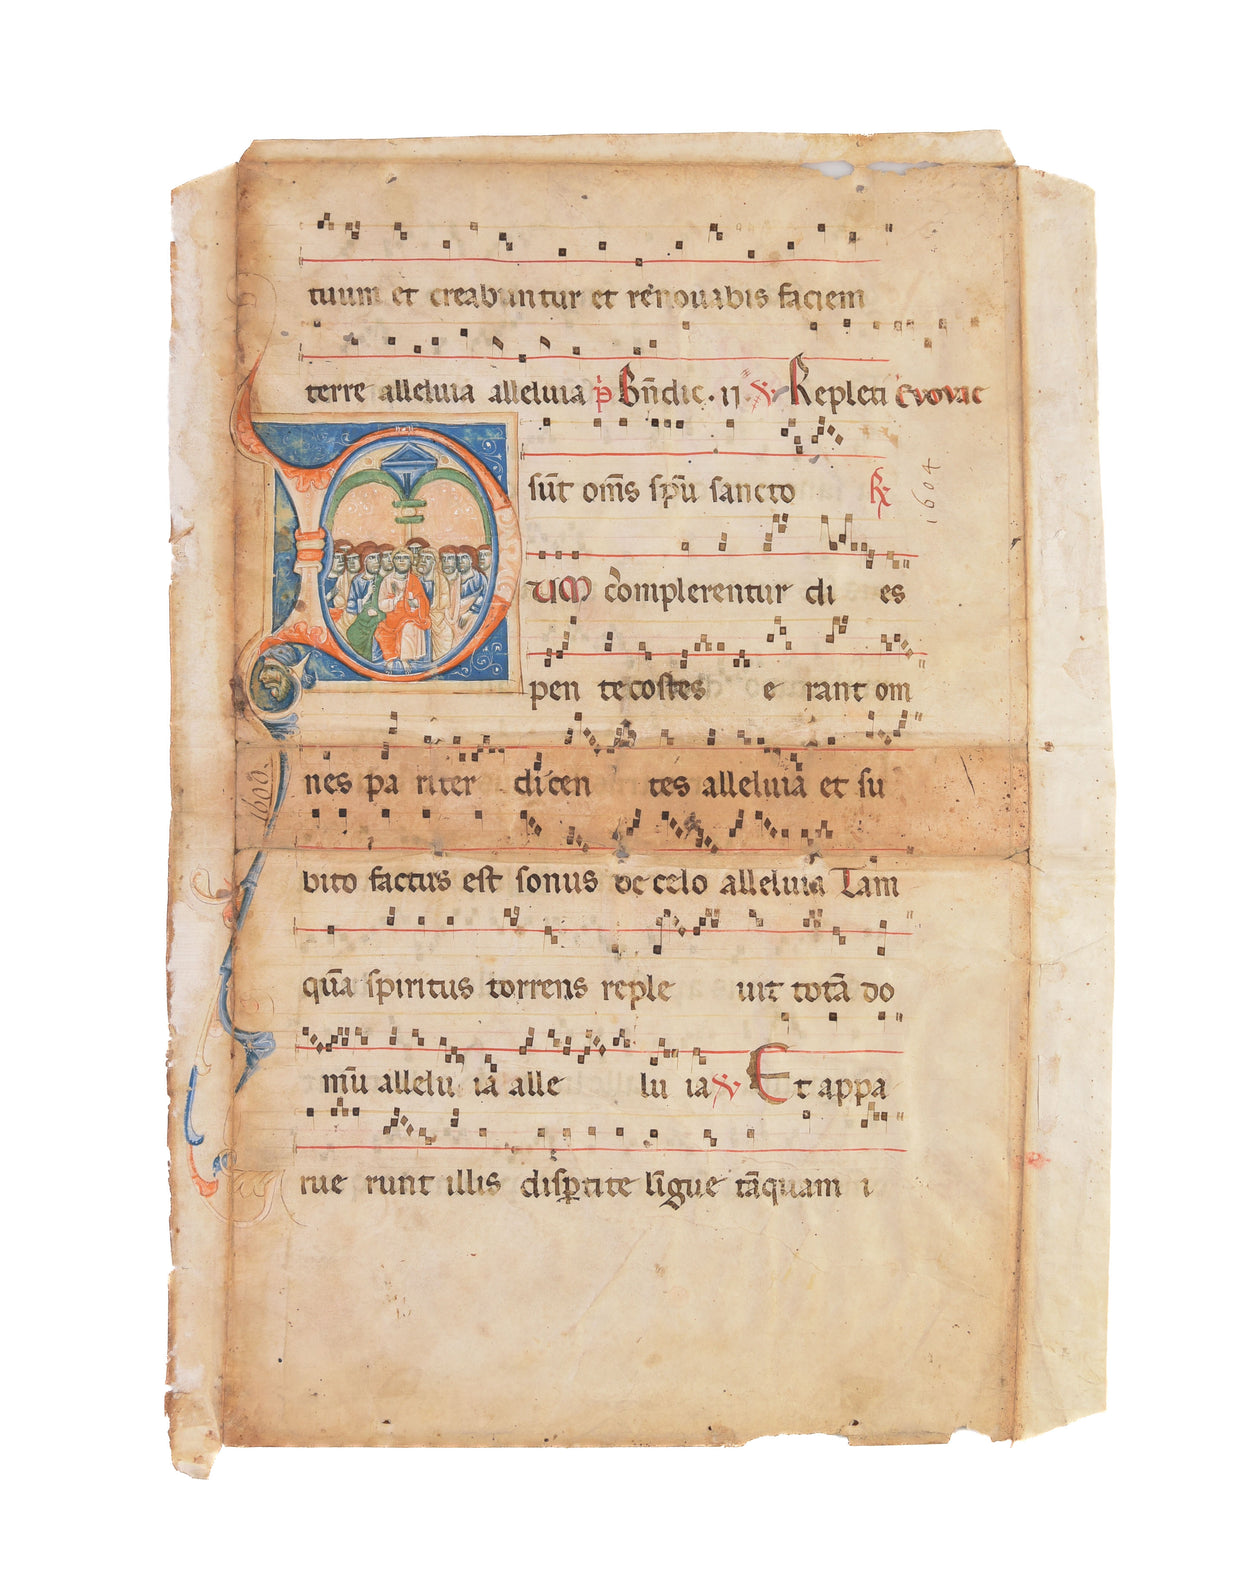 tuum et creabuntur et renouabis faciem
terre alleluia alleluia p̄ Bn̄dic. ij ℣ Repleti Evovae
sūt om̄s sp̄u sancto ℟
DUM complerentur di es
pen tecostes e rant om
nes pa riter dicen tes alleluia et su
bito factus est sonus de celo alleluia Tam
quā spiritus torrens reple uit totā do
mū allelu ia alle lu ia ℣ Et appa
rue runt illis disꝑtite līgue tāquam i
1604
1600